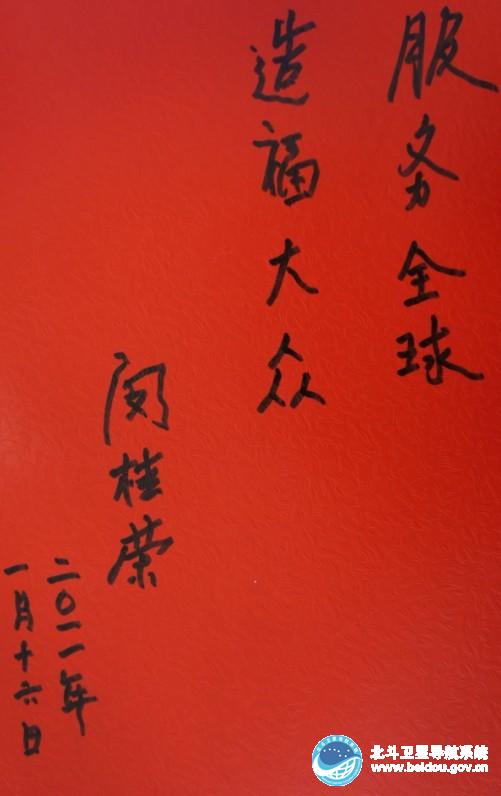 服务全球
造福大众
闵桂荣
二〇一一年
一月十六日
北斗卫星导航系统
www.beidou.gov.cn